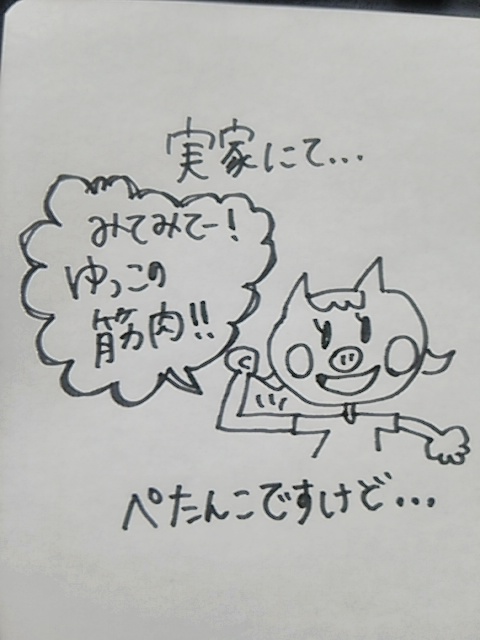 実家にて...
みてみてー!
ゆっこの
筋肉!!
ぺたんこですけど...